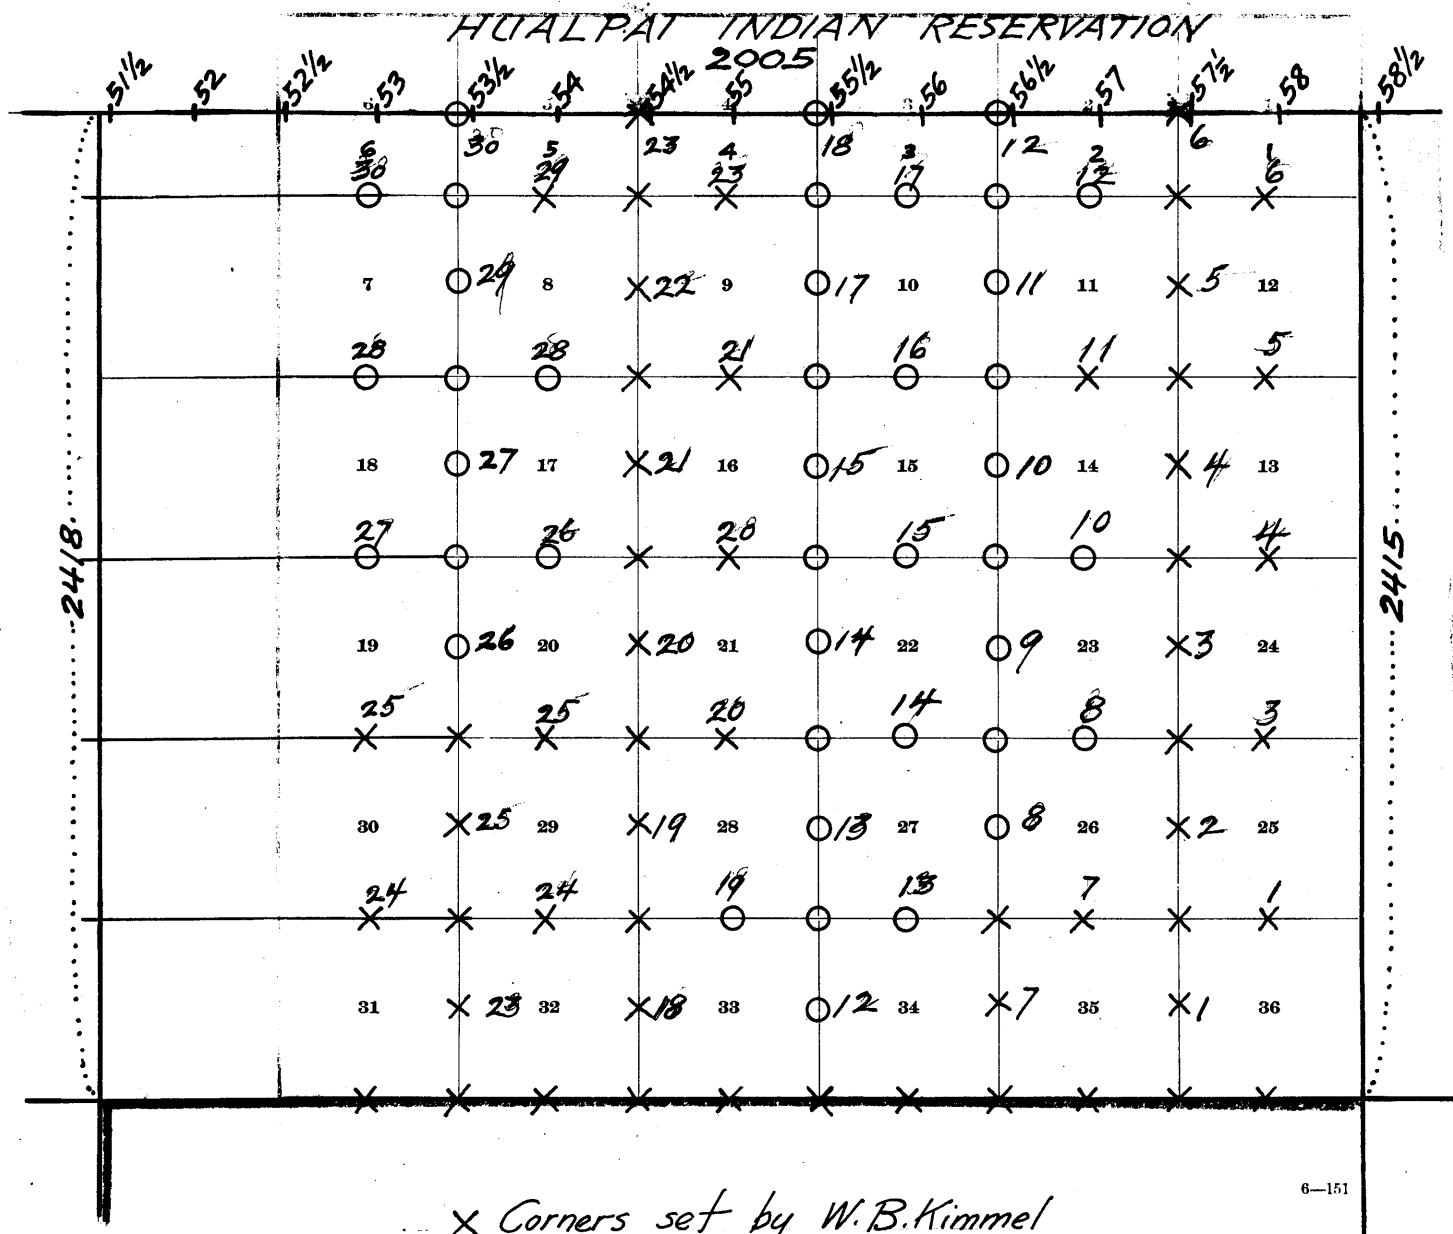 HUALPAI INDIAN RESERVATION
2005
51½ 52 52½ 53 53½ 54 54½ 55 55½ 56 56½ 57 57½ 58 58½
6 30 5 23 4 18 3 12 2 6 1
30 29 23 17 12 6
7 29 8 22 9 17 10 11 11 5 12
28 28 21 16 11 5
18 27 17 21 16 15 15 10 14 4 13
27 26 20 15 10 4
2418 2415
19 26 20 20 21 14 22 9 23 3 24
25 25 20 14 8 3
30 25 29 19 28 13 27 8 26 2 25
24 24 19 13 7 1
31 23 32 18 33 12 34 7 35 1 36
6—151
X Corners set by W.B.Kimmel